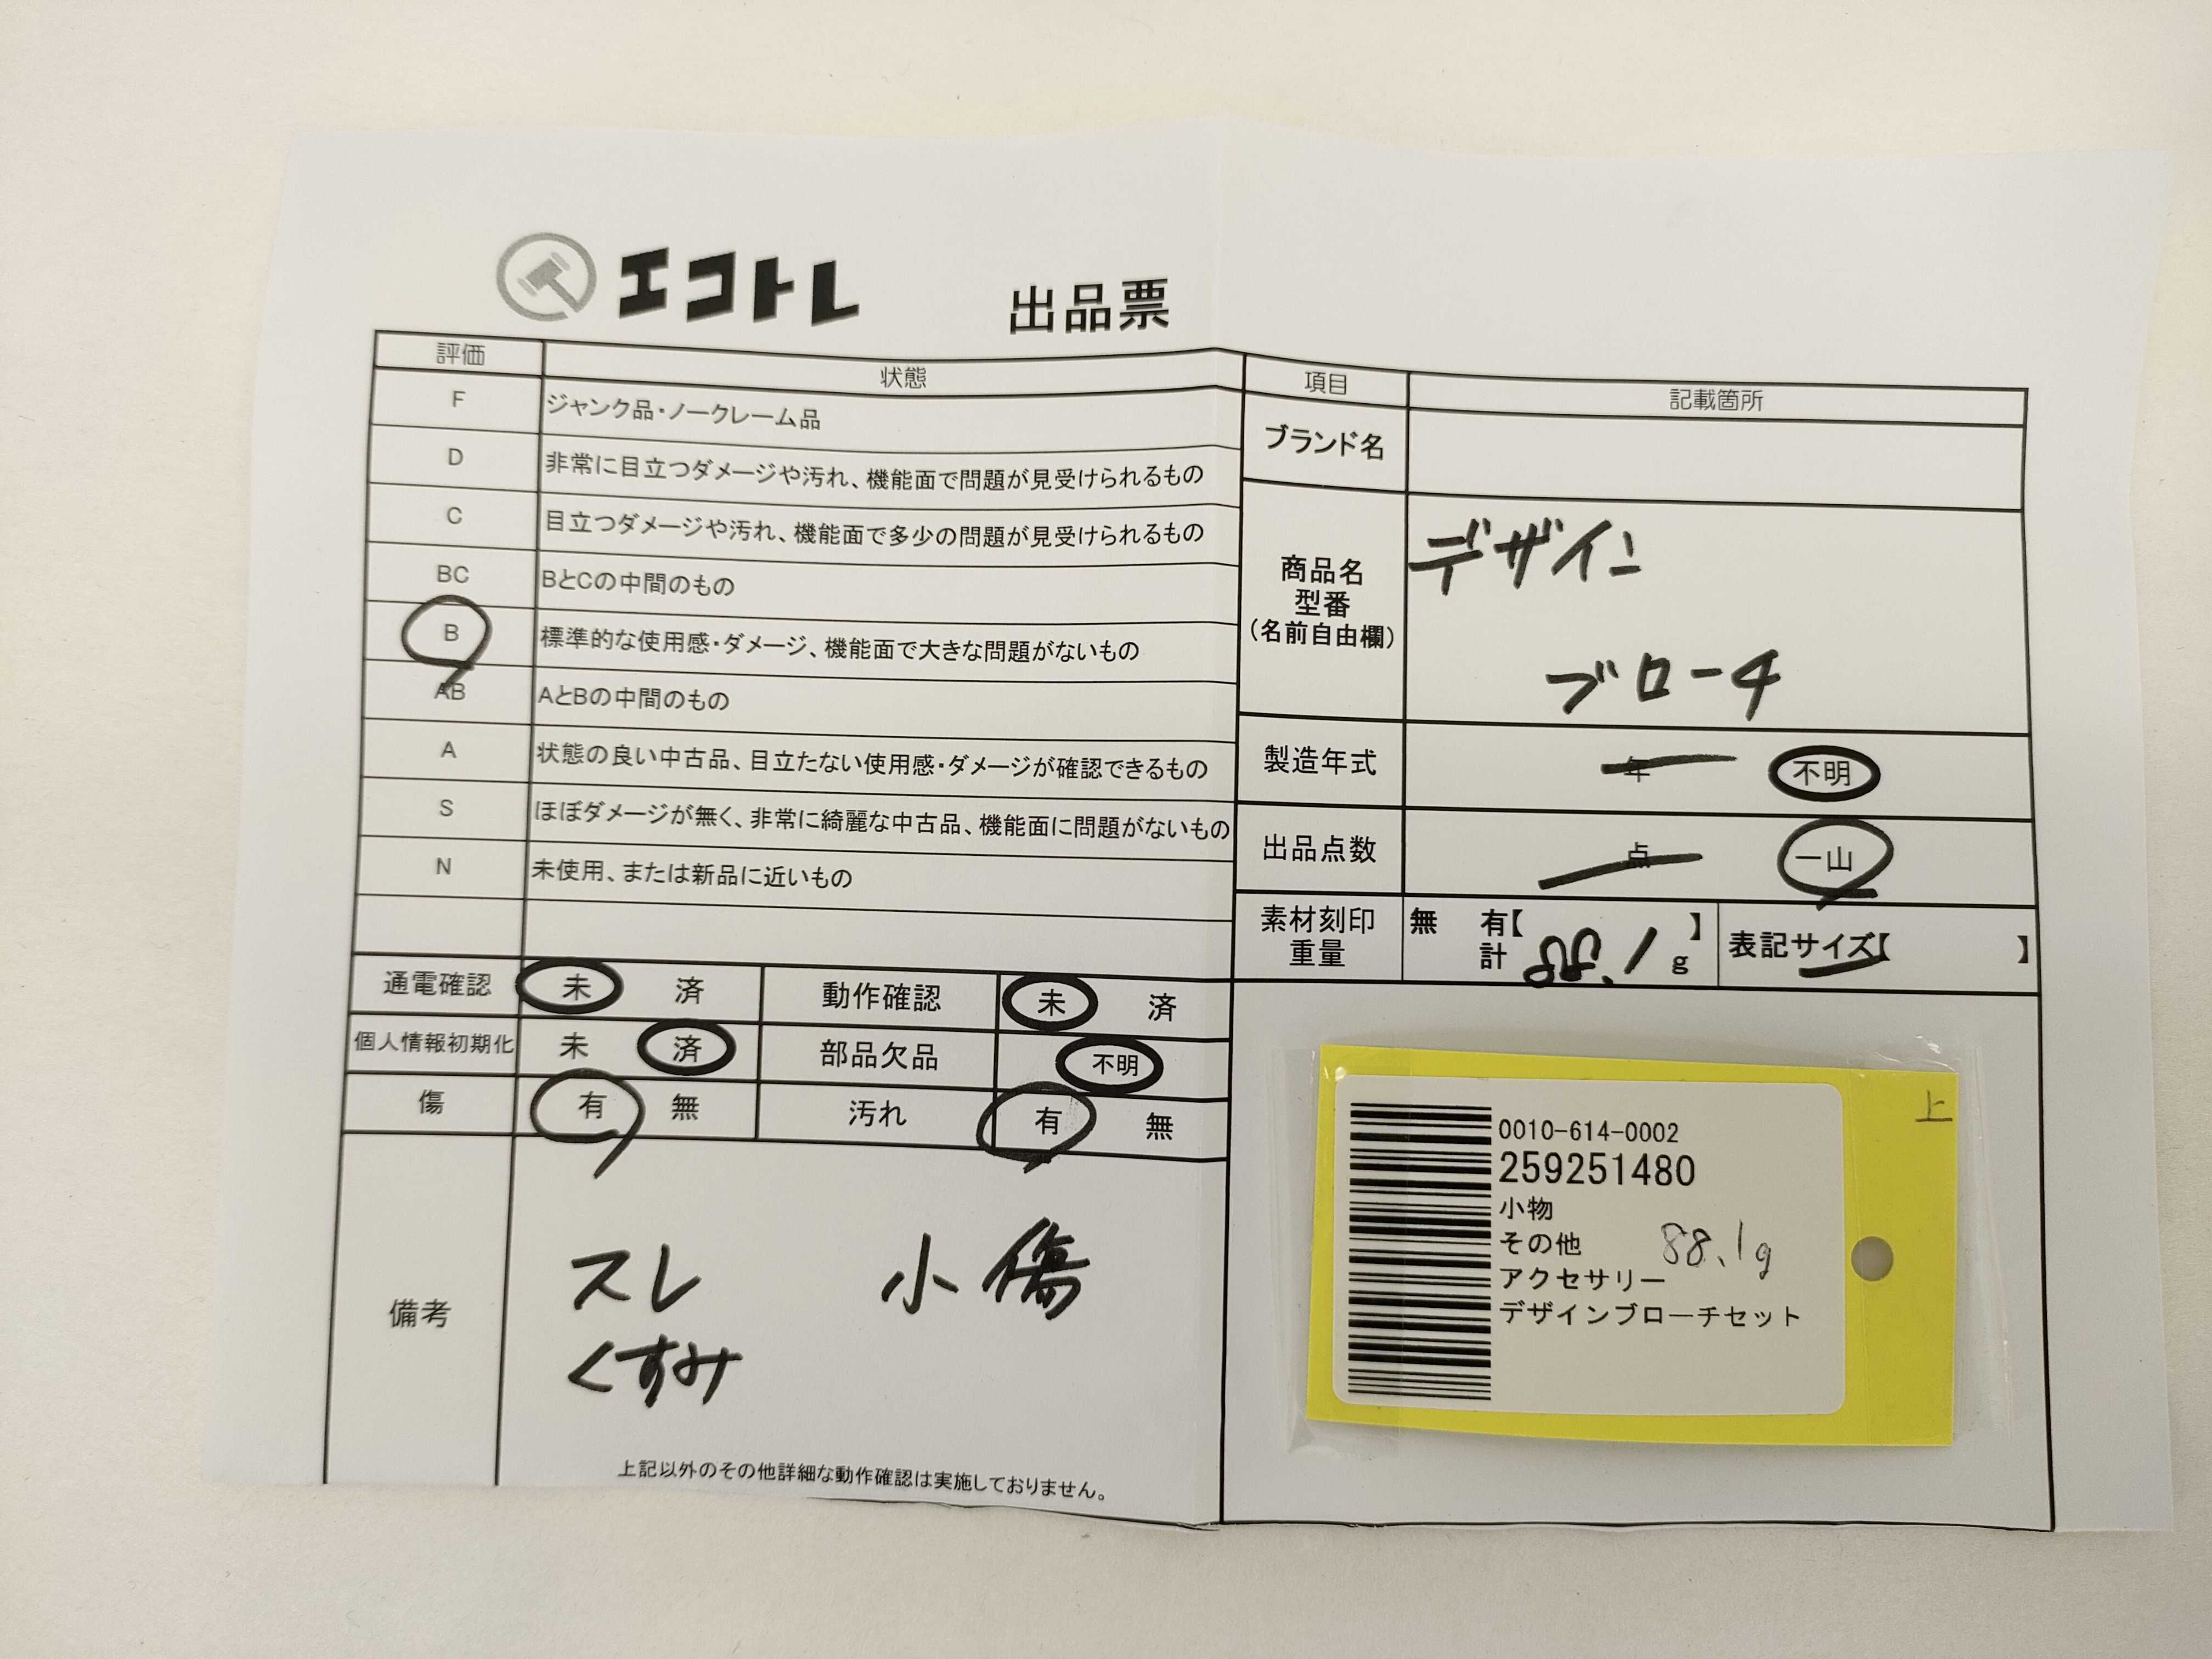 エコトレ 出品票
評価 状態
F ジャンク品・ノークレーム品
D 非常に目立つダメージや汚れ、機能面で問題が見受けられるもの
C 目立つダメージや汚れ、機能面で多少の問題が見受けられるもの
BC BとCの中間のもの
B 標準的な使用感・ダメージ、機能面で大きな問題がないもの
AB AとBの中間のもの
A 状態の良い中古品、目立たない使用感・ダメージが確認できるもの
S ほぼダメージが無く、非常に綺麗な中古品、機能面に問題がないもの
N 未使用、または新品に近いもの
通電確認 未 済 動作確認 未 済
個人情報初期化 未 済 部品欠品 不明
傷 有 無 汚れ 有 無
備考
スレ 小傷
くすみ
上記以外のその他詳細な動作確認は実施しておりません。
項目 記載箇所
ブランド名
商品名
型番
(名前自由欄)
デザイン
ブローチ
製造年式 年 不明
出品点数 点 一山
素材刻印 無 有【 】
重量 計 88.1 g
表記サイズ【 】
上
0010-614-0002
259251480
小物
その他 88.1g
アクセサリー
デザインブローチセット